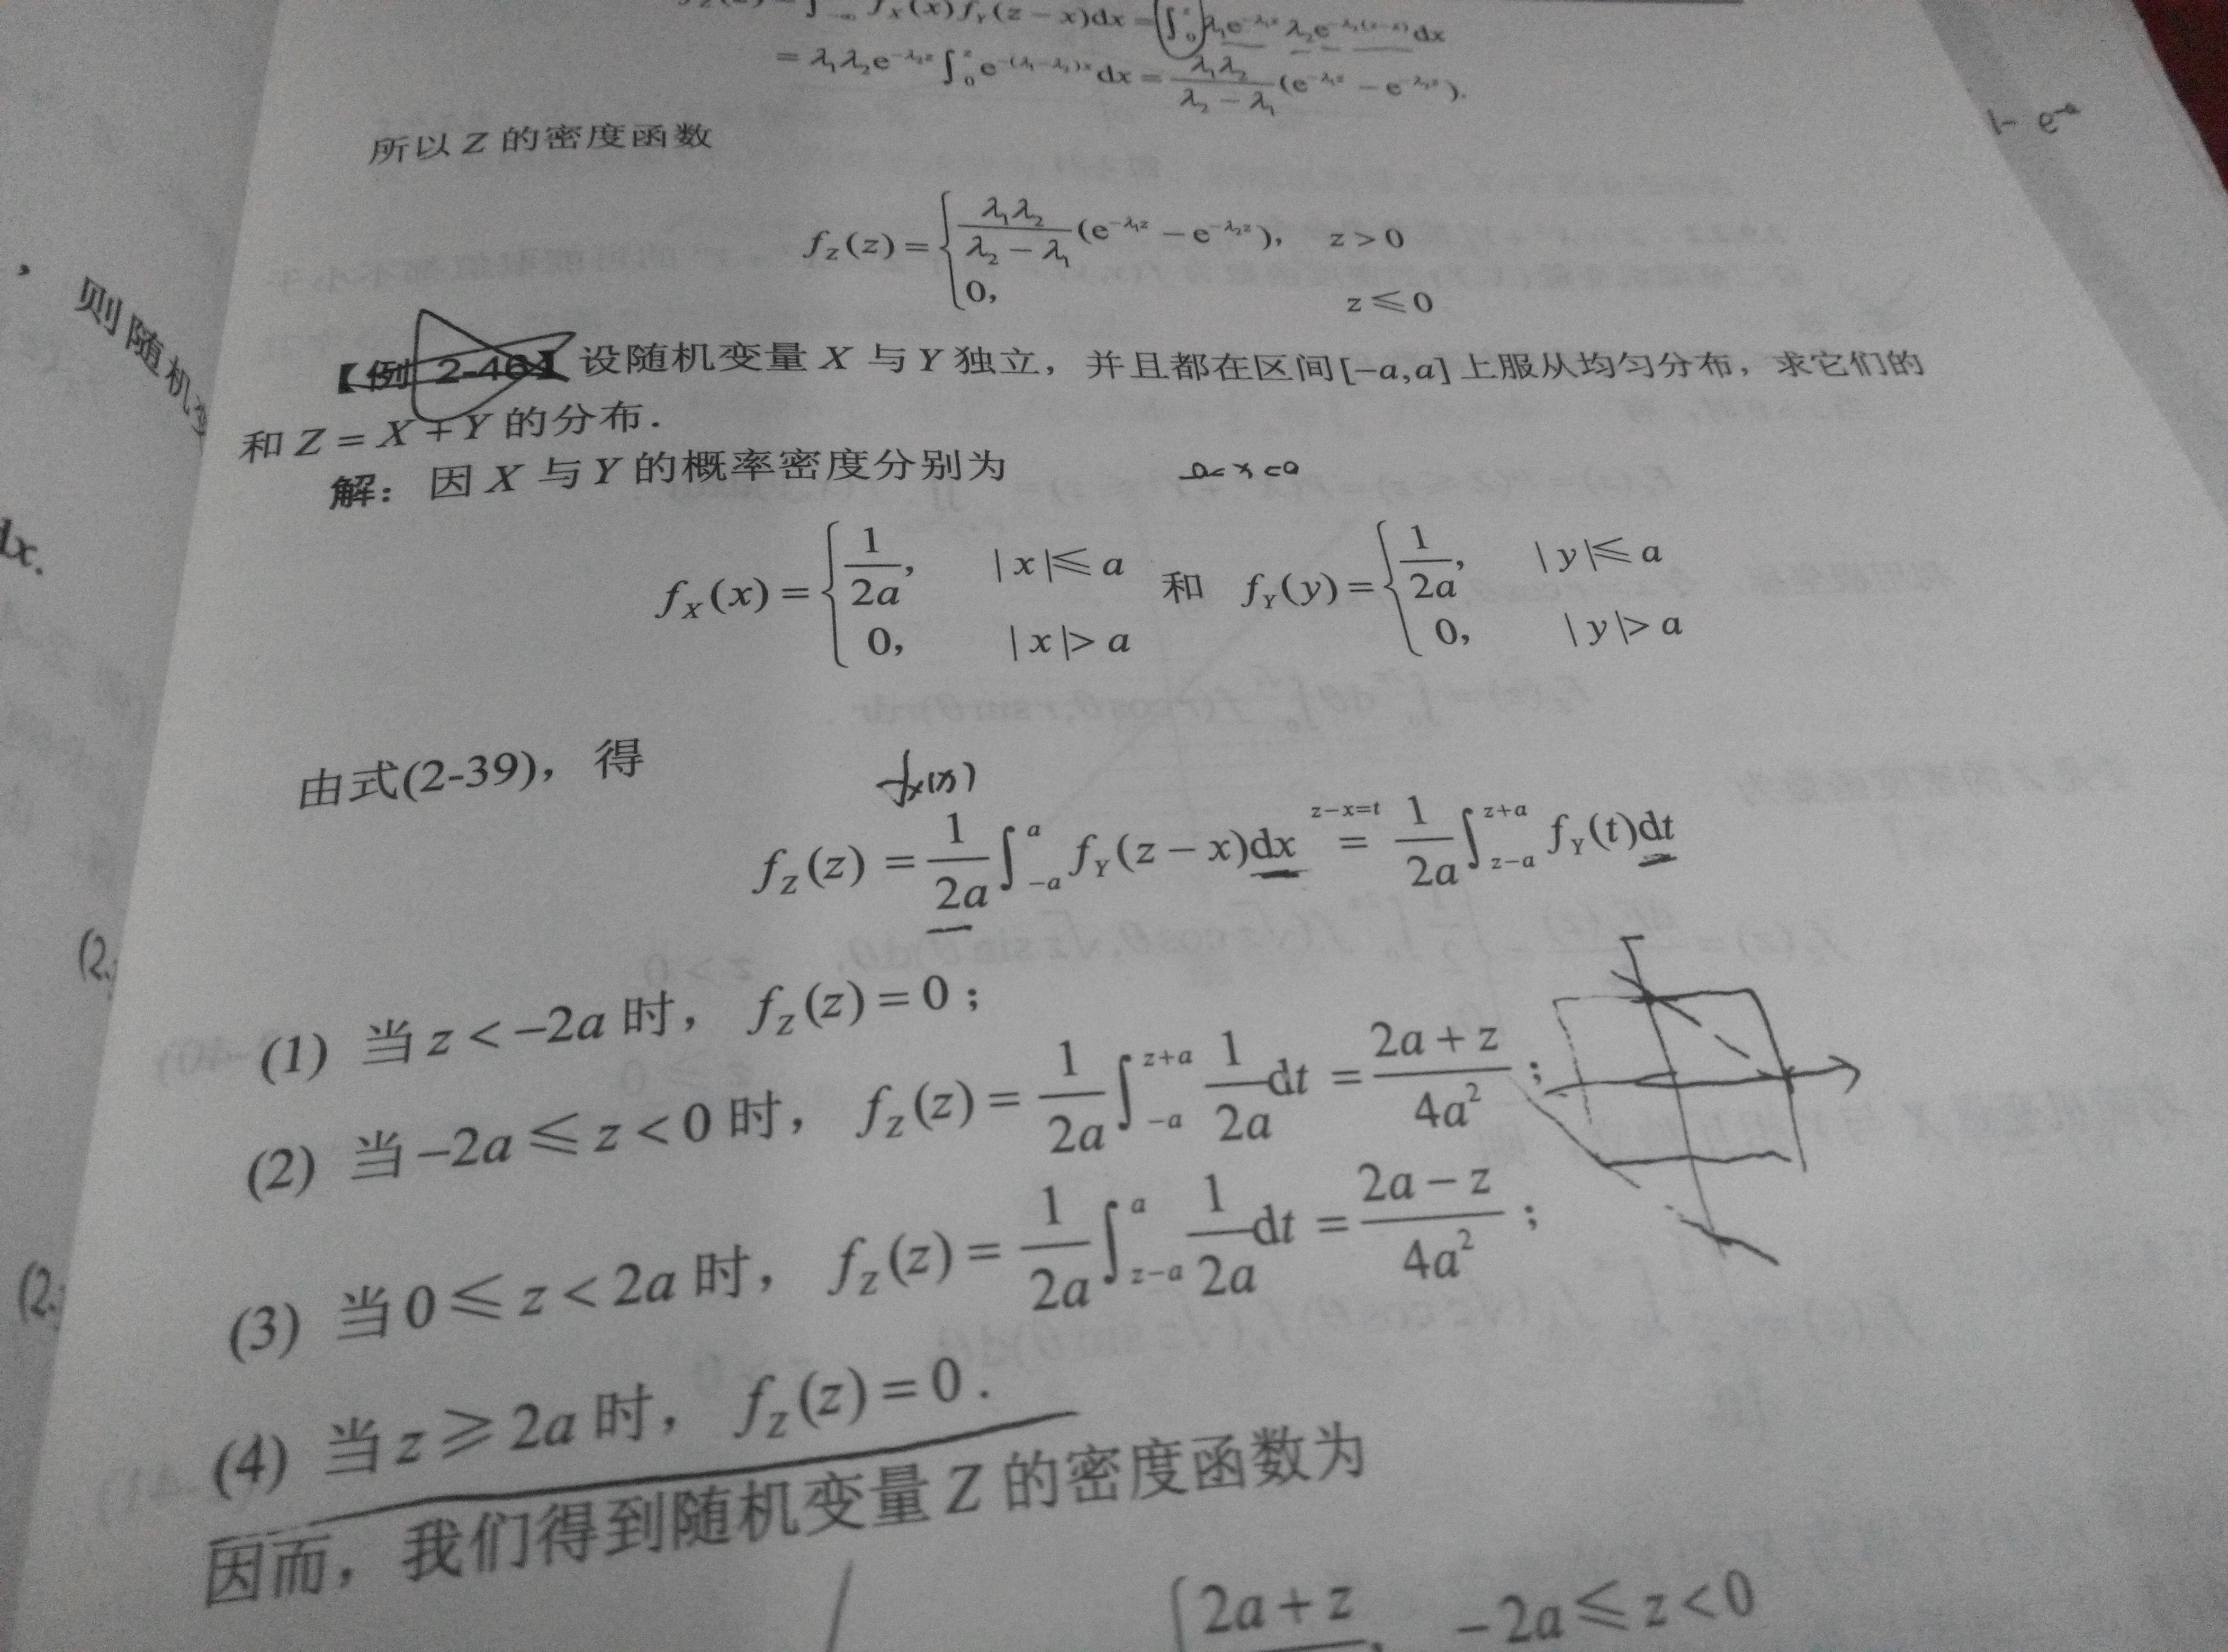 f_Z(z) = ∫_{-∞} f_X(x) f_Y(z − x)dx = ∫_0^z λ₁e^{−λ₁x} λ₂e^{−λ₂(z−x)} dx
= λ₁λ₂e^{−λ₂z} ∫_0^z e^{−(λ₁−λ₂)x} dx = \frac{λ₁λ₂}{λ₂ − λ₁}(e^{−λ₁z} − e^{−λ₂z}).
1 - e^{-a}
所以 Z 的密度函数
f_Z(z) = { \frac{λ₁λ₂}{λ₂ − λ₁}(e^{−λ₁z} − e^{−λ₂z}), z > 0
0, z ⩽ 0
则随机变
【例 2-46】 设随机变量 X 与 Y 独立，并且都在区间[−a,a]上服从均匀分布，求它们的
和 Z = X + Y 的分布.
解：因 X 与 Y 的概率密度分别为
-a<x<a
dx.
f_X(x) = { \frac{1}{2a}, |x| ⩽ a 和 f_Y(y) = { \frac{1}{2a}, |y| ⩽ a
0, |x| > a 0, |y| > a
由式(2-39)，得
f_X(x)
f_Z(z) = \frac{1}{2a} ∫_{−a}^{a} f_Y(z − x)dx \overset{z−x=t}{=} \frac{1}{2a} ∫_{z−a}^{z+a} f_Y(t)dt
(2.
(1) 当 z < −2a 时， f_Z(z) = 0；
(2) 当 −2a ⩽ z < 0 时， f_Z(z) = \frac{1}{2a} ∫_{−a}^{z+a} \frac{1}{2a} dt = \frac{2a + z}{4a²}；
(2.
(3) 当 0 ⩽ z < 2a 时， f_Z(z) = \frac{1}{2a} ∫_{z−a}^{a} \frac{1}{2a} dt = \frac{2a − z}{4a²}；
(4) 当 z ⩾ 2a 时， f_Z(z) = 0．
因而，我们得到随机变量 Z 的密度函数为
{ 2a + z, −2a ⩽ z < 0